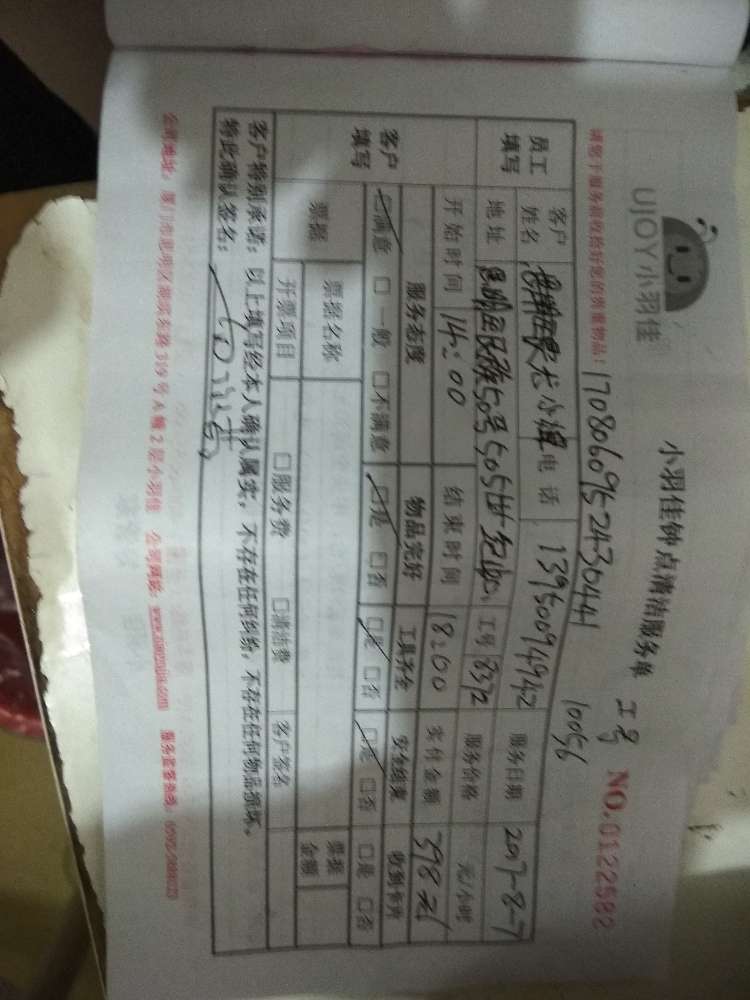 UJOY小羽佳
小羽佳钟点清洁服务单
工号 10056
NO.0122582
请您于服务前收拾好您的贵重物品!
员工填写 客户姓名 小姐 电话 13950094942 服务日期 2017-8-7
地址 505 工号 8372 服务价格 元/小时
开始时间 14:00 结束时间 18:00 实付金额 398元
客户填写 服务态度 物品完好 工具齐全 安全结束 收到卡片
☑满意 □一般 □不满意 ☑是 □否 ☑是 □否 ☑是 □否 □是 □否
票据 票据名称: 票据金额
开票项目 □服务费 □清洁费 客户签名
客户特别承诺:以上填写经本人确认属实,不存在任何纠纷,不存在任何物品损坏。
特此确认签名:
公司地址: 厦门市思明区湖滨东路319号A幢2层小羽佳 公司网址: 服务监督热线: